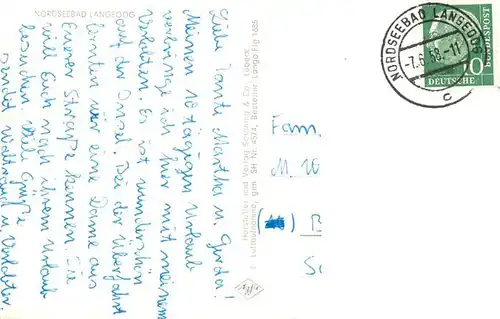 NORDSEEBAD LANGEOOG
Liebe Tante Martha u. Gerda!
Meinen 10 tägigen Urlaub
verbringe ich hier mit meinem
Verlobten. Es ist wunderschön
auf der Insel. Bei der Überfahrt
lernten wir eine Dame aus
Eurer Straße kennen. Sie
will Euch nach ihrem Urlaub
besuchen. Viele Grüße
sendet Waltraud u. Verlobter.
Hersteller und Verlag Schöning & Co., Lübeck
Luftaufnahme, gen. SH Nr. Bestellnr. Lango Flg 1685
NORDSEEBAD LANGEOOG
-7.6.58.-11
c
DEUTSCHE BUNDESPOST
10
Fam.
M. W
(
B
S